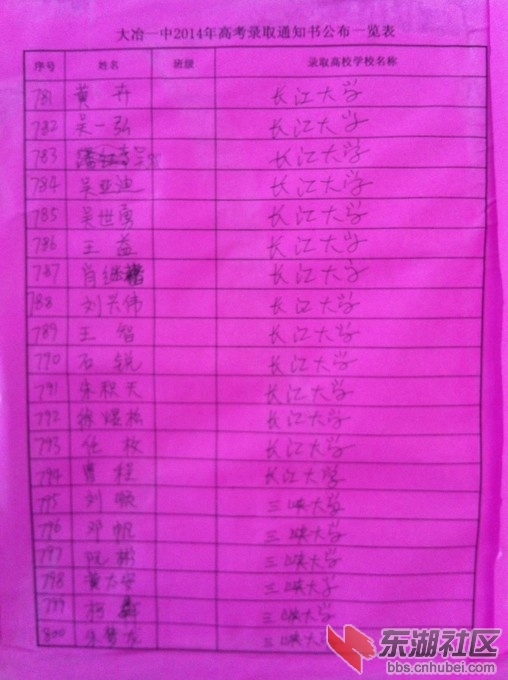 大冶一中2014年高考录取通知书公布一览表
序号 姓名 班级 录取高校学校名称
781 黄卉 长江大学
782 吴一弘 长江大学
783 长江大学
784 吴亚迪 长江大学
785 吴世勇 长江大学
786 王益 长江大学
787 肖继 长江大学
788 刘兴伟 长江大学
789 王智 长江大学
790 石锐 长江大学
791 朱积天 长江大学
792 徐煜松 长江大学
793 任枚 长江大学
794 曹程 长江大学
795 刘顺 三峡大学
796 邓帆 三峡大学
797 阮彬 三峡大学
798 黄志安 三峡大学
799 柯 三峡大学
800 朱梦龙 三峡大
东湖社区
bbs.cnhubei.com